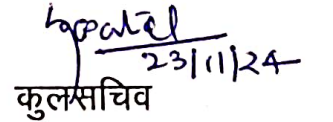 23/11/24
कुलसचिव